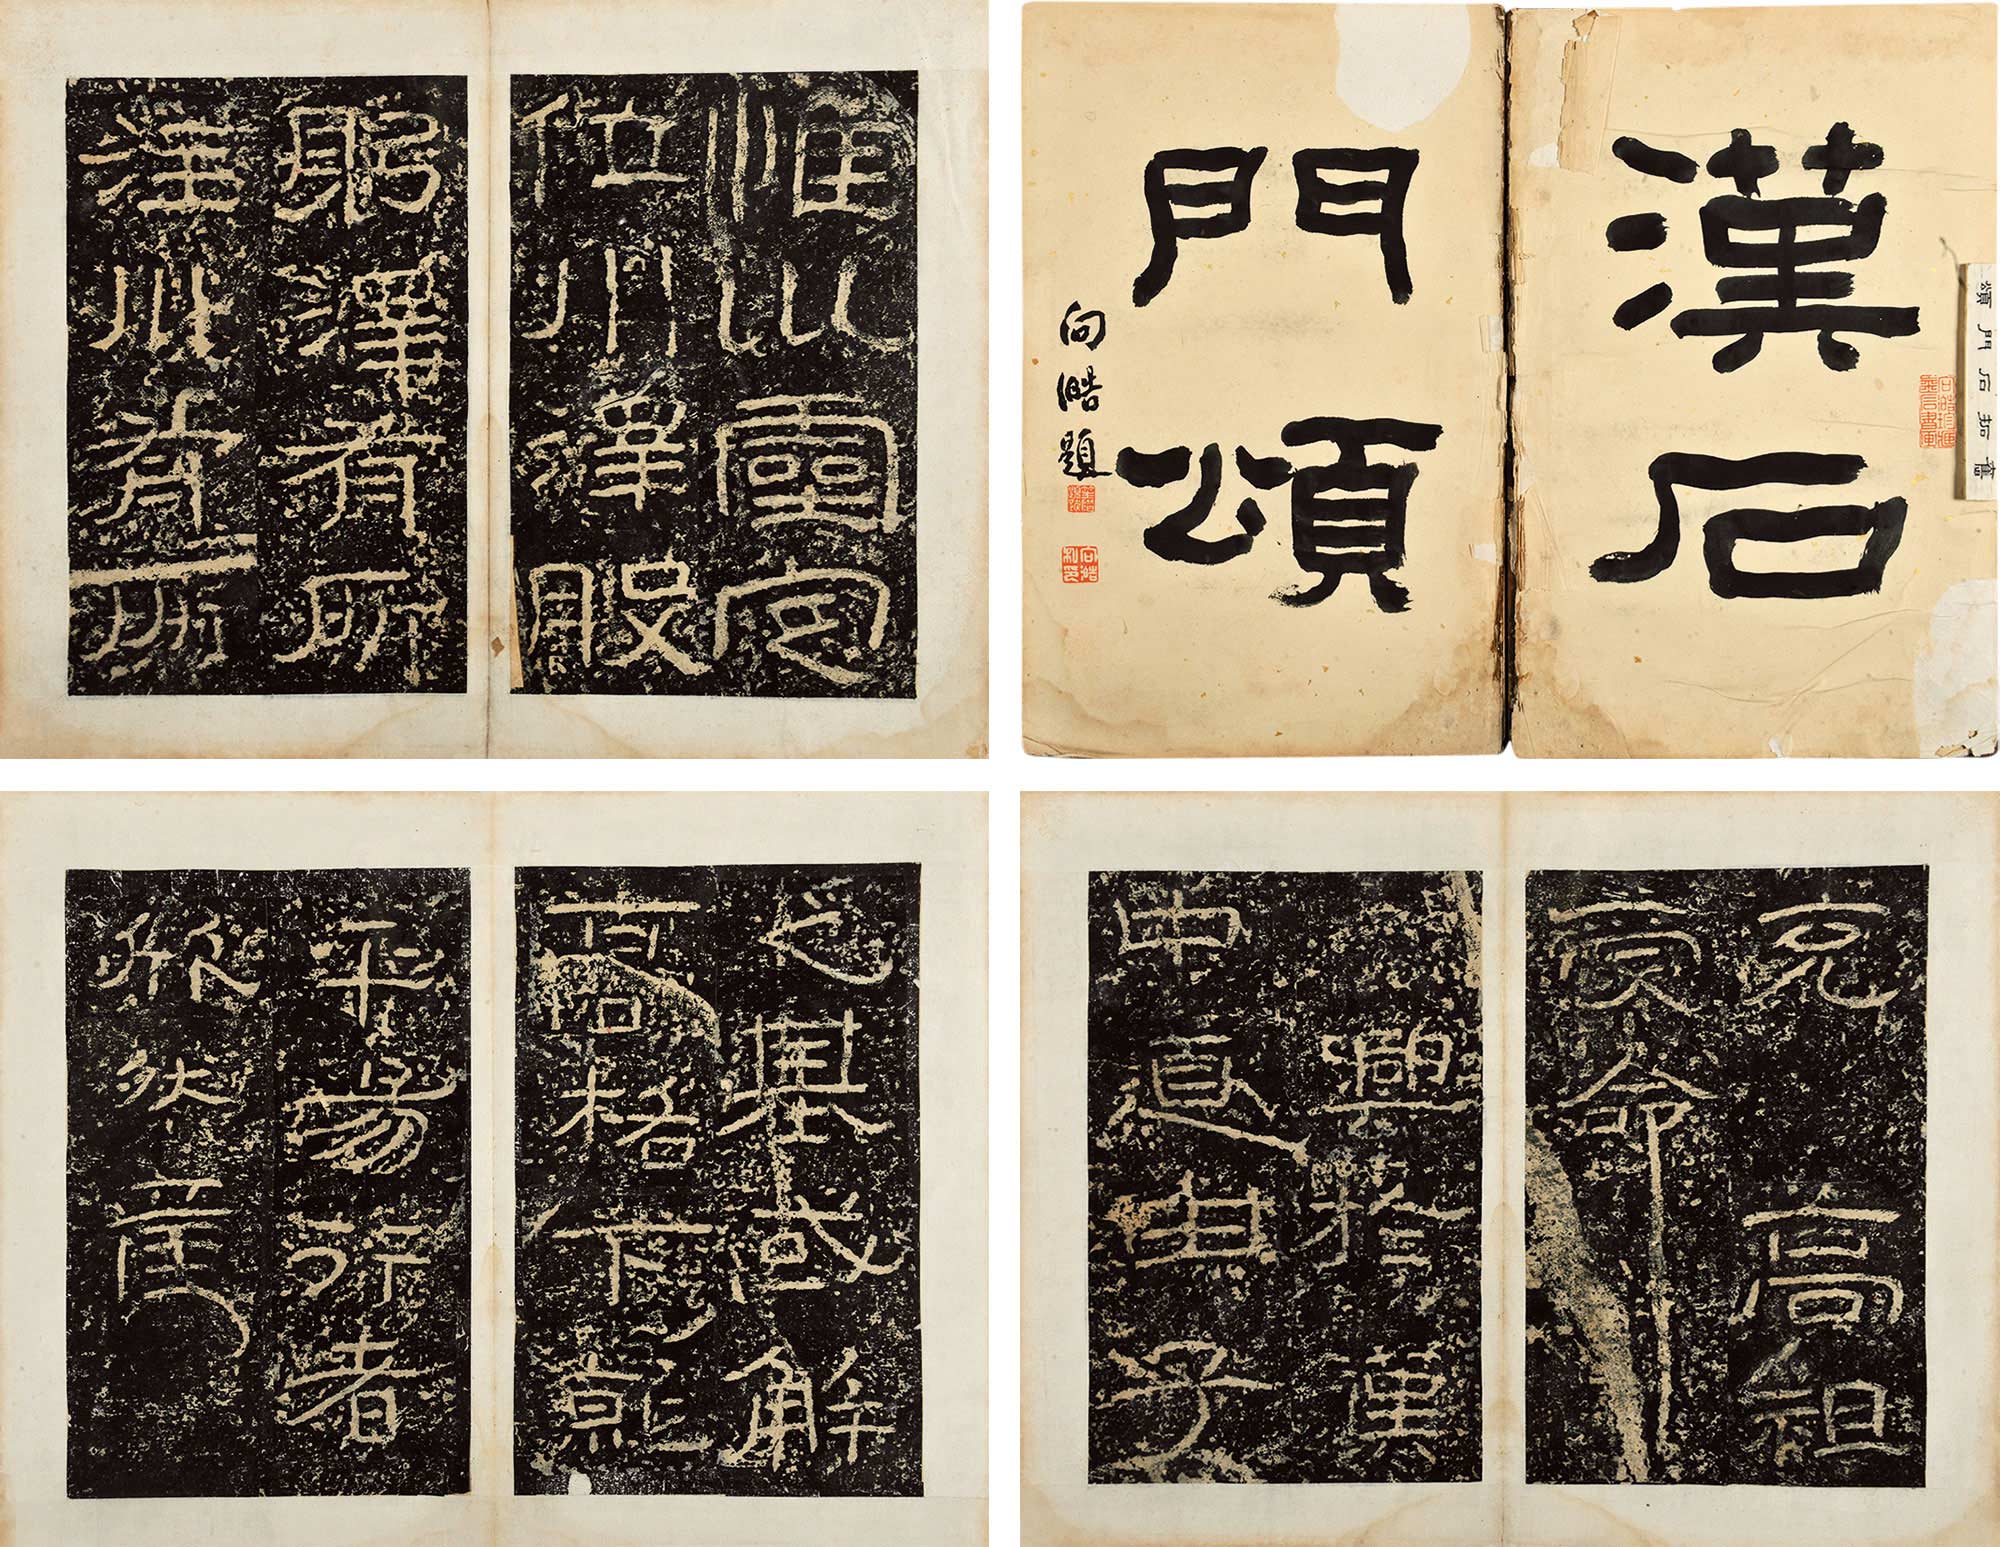 惟巛靈定
位川澤股
躬澤有所
注川有所
漢石
門頌
向皓題
舊拓石門頌
之基或解
高格下就
平易行者
欣然焉
充高祖
受命
興於漢
中道由子